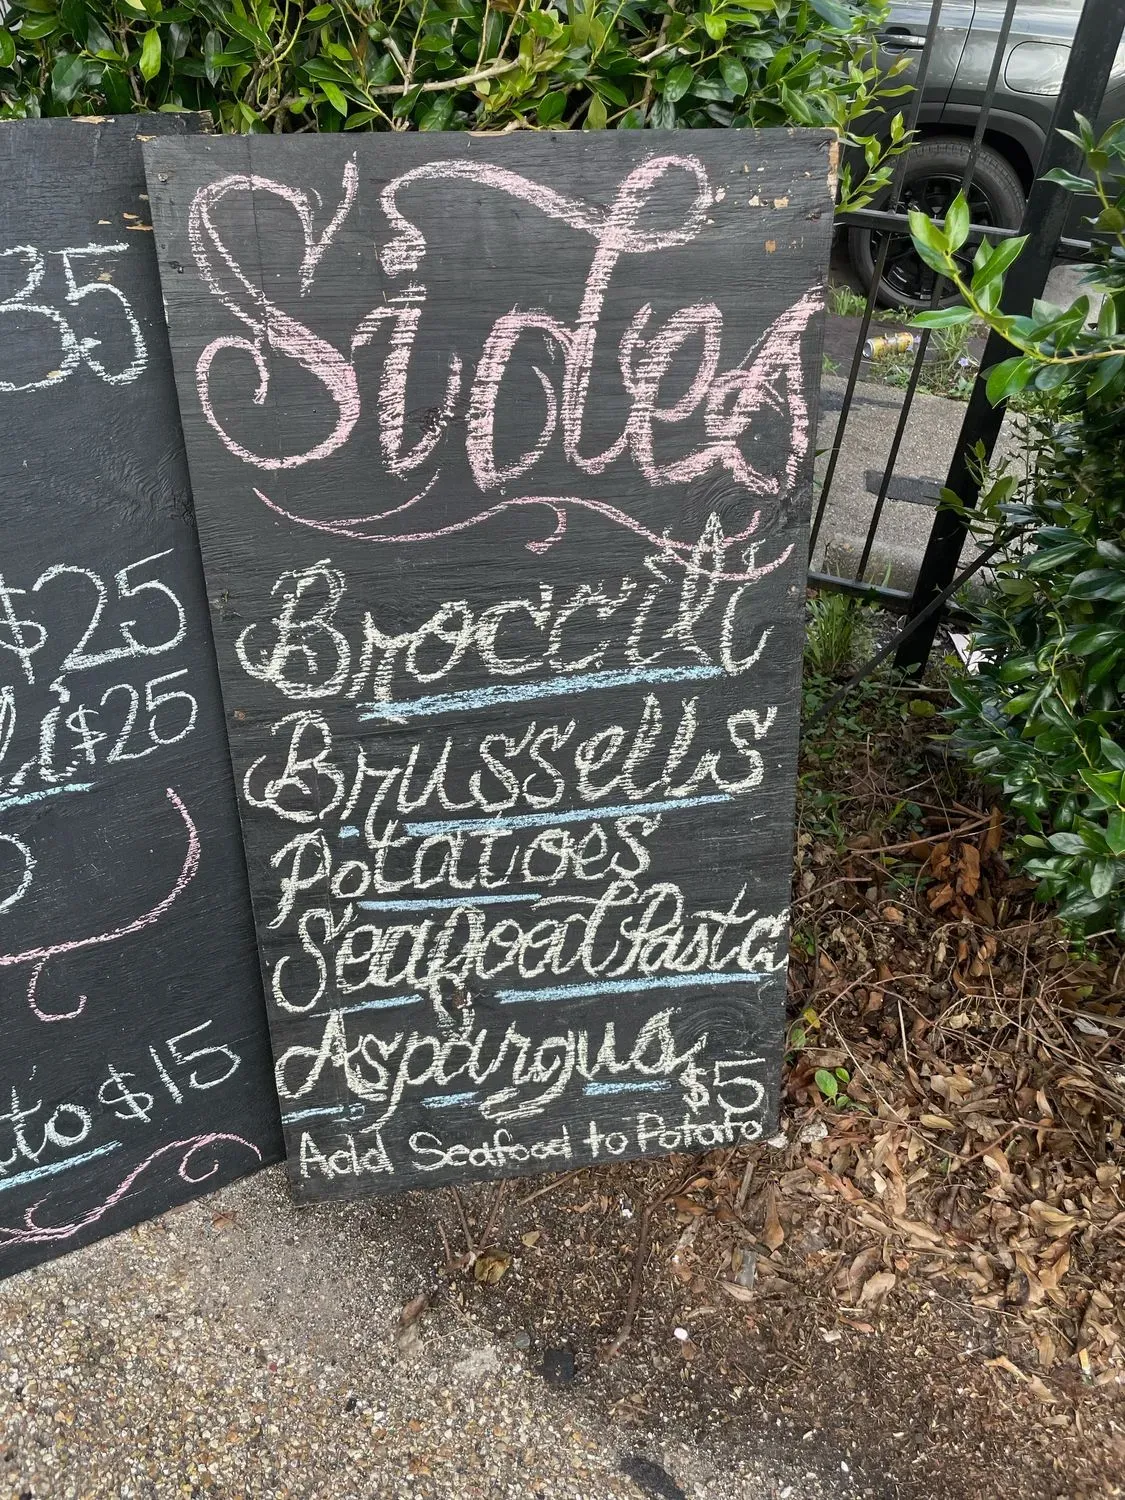 35
$25
li $25
to $15
Sides
Broccili
Brussells
Potatoes
Seafood Pasta
Aspargus
$5
Add Seafood to Potato